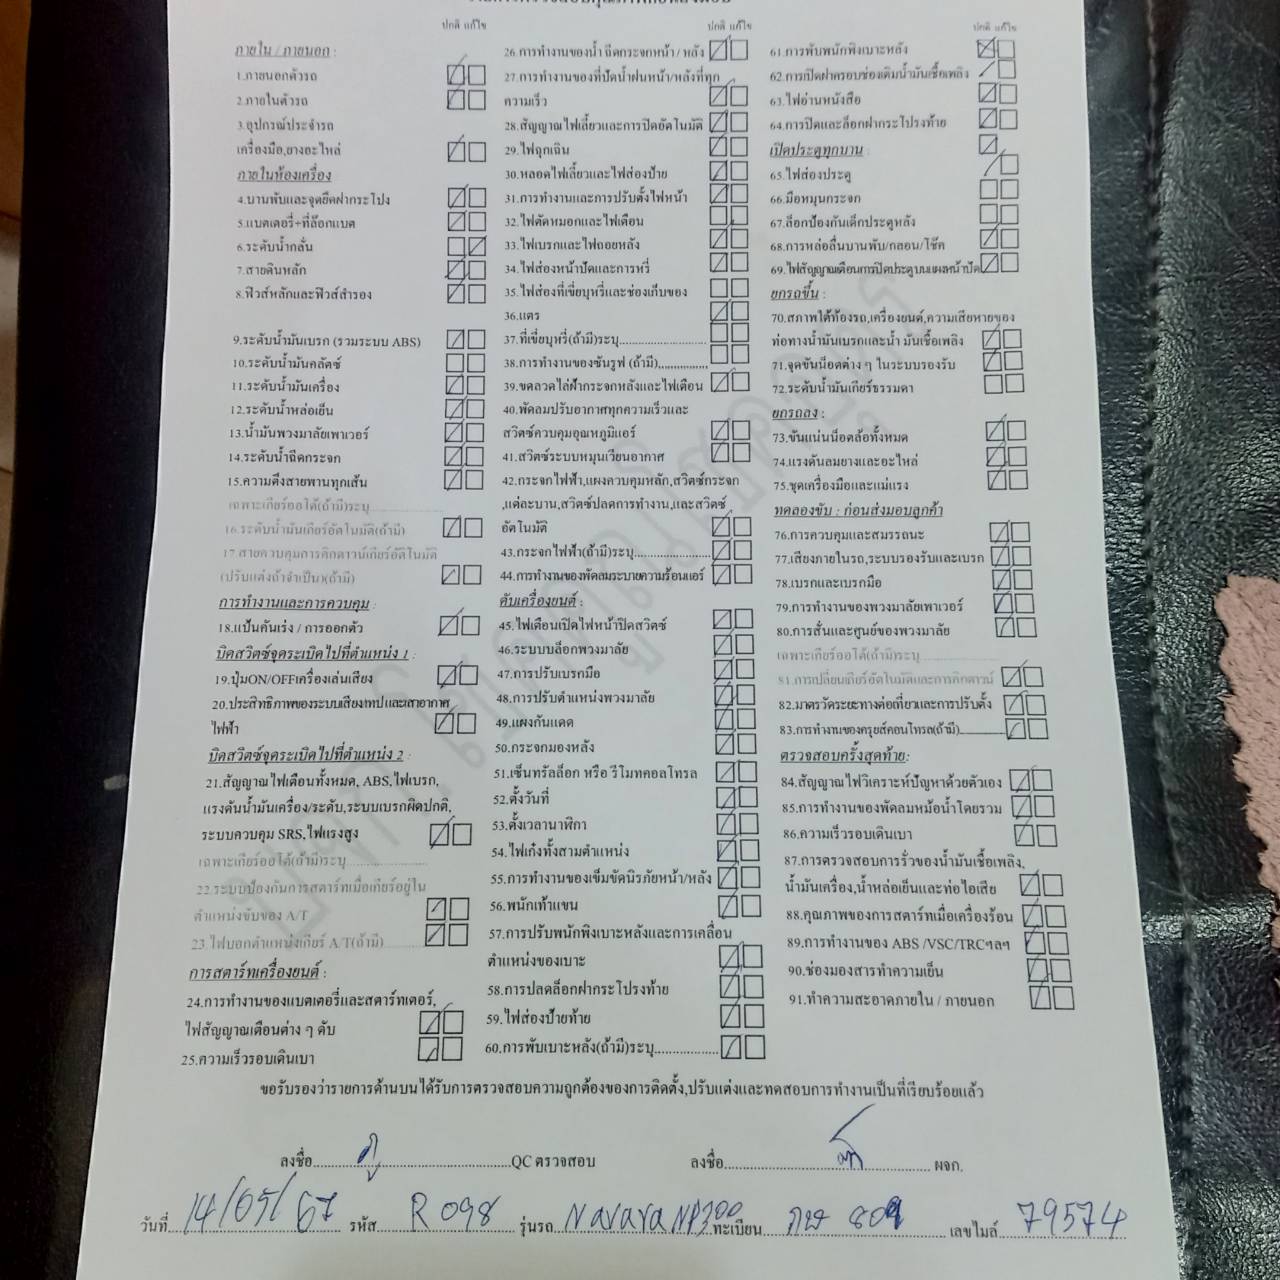 ปกติ แก้ไข
ภายใน / ภายนอก :
1.ภายนอกตัวรถ
2.ภายในตัวรถ
3.อุปกรณ์ประจำรถ
เครื่องมือ,ยางอะไหล่
ภายในห้องเครื่อง
4.บานพับและจุดยึดฝากระโปง
5.แบตเตอรี่+ที่ล๊อกแบต
6.ระดับน้ำกลั่น
7.สายดินหลัก
8.ฟิวส์หลักและฟิวส์สำรอง
9.ระดับน้ำมันเบรก (รวมระบบ ABS)
10.ระดับน้ำมันคลัตซ์
11.ระดับน้ำมันเครื่อง
12.ระดับน้ำหล่อเย็น
13.น้ำมันพวงมาลัยเพาเวอร์
14.ระดับน้ำฉีดกระจก
15.ความตึงสายพานทุกเส้น
เฉพาะเกียร์ออโต้(ถ้ามี)ระบุ
16.ระดับน้ำมันเกียร์อัตโนมัติ(ถ้ามี)
17.สายควบคุมการคิกดาวน์เกียร์อัติโนมัติ
(ปรับแต่งถ้าจำเป็น)(ถ้ามี)
การทำงานและการควบคุม :
18.แป้นคันเร่ง / การออกตัว
บิดสวิตซ์จุดระเบิดไปที่ตำแหน่ง 1 :
19.ปุ่มON/OFFเครื่องเล่นเสียง
20.ประสิทธิภาพของระบบเสียง/เทปและเสาอากาศ
ไฟฟ้า
บิดสวิตซ์จุดระเบิดไปที่ตำแหน่ง 2 :
21.สัญญาณไฟเตือนทั้งหมด, ABS,ไฟเบรก,
แรงดันน้ำมันเครื่อง/ระดับ,ระบบเบรกผิดปกติ,
ระบบควบคุม SRS,ไฟแรงสูง
เฉพาะเกียร์ออโต้(ถ้ามี)ระบุ
22.ระบบป้องกันการสตาร์ทเมื่อเกียร์อยู่ใน
ตำแหน่งขับของ A/T
23.ไฟบอกตำแหน่งเกียร์ A/T(ถ้ามี)
การสตาร์ทเครื่องยนต์ :
24.การทำงานของแบตเตอรี่และสตาร์ทเตอร์,
ไฟสัญญาณเตือนต่าง ๆ ดับ
25.ความเร็วรอบเดินเบา
ปกติ แก้ไข
26.การทำงานของน้ำ ฉีดกระจกหน้า / หลัง
27.การทำงานของที่ปัดน้ำฝนหน้า/หลังที่ทุก
ความเร็ว
28.สัญญาณไฟเลี้ยวและการปิดอัตโนมัติ
29.ไฟฉุกเฉิน
30.หลอดไฟเลี้ยวและไฟส่องป้าย
31.การทำงานและการปรับตั้งไฟหน้า
32.ไฟตัดหมอกและไฟเตือน
33.ไฟเบรกและไฟถอยหลัง
34.ไฟส่องหน้าปัดและการหรี่
35.ไฟส่องที่เขี่ยบุหรี่และช่องเก็บของ
36.แตร
37.ที่เขี่ยบุหรี่(ถ้ามี)ระบุ
38.การทำงานของซันรูฟ (ถ้ามี)
39.ขดลวดไล่ฝ้ากระจกหลังและไฟเตือน
40.พัดลมปรับอากาศทุกความเร็วและ
สวิตซ์ควบคุมอุณหภูมิแอร์
41.สวิตซ์ระบบหมุนเวียนอากาศ
42.กระจกไฟฟ้า,แผงควบคุมหลัก,สวิตซ์กระจก
,แต่ละบาน,สวิตซ์ปลดการทำงาน,และสวิตซ์
อัตโนมัติ
43.กระจกไฟฟ้า(ถ้ามี)ระบุ
44.การทำงานของพัดลมระบายความร้อนแอร์
ดับเครื่องยนต์ :
45.ไฟเตือนเปิดไฟหน้าปิดสวิตซ์
46.ระบบบล็อกพวงมาลัย
47.การปรับเบรกมือ
48.การปรับตำแหน่งพวงมาลัย
49.แผงกันแดด
50.กระจกมองหลัง
51.เซ็นทรัลล็อก หรือ รีโมทคอลโทรล
52.ตั้งวันที่
53.ตั้งเวลานาฬิกา
54.ไฟเก๋งทั้งสามตำแหน่ง
55.การทำงานของเข็มขัดนิรภัยหน้า/หลัง
56.พนักเท้าแขน
57.การปรับพนักพิงเบาะหลังและการเคลื่อน
ตำแหน่งของเบาะ
58.การปลดล็อกฝากระโปรงท้าย
59.ไฟส่องป้ายท้าย
60.การพับเบาะหลัง(ถ้ามี)ระบุ
ปกติ แก้ไข
61.การพับพนักพิงเบาะหลัง
62.การเปิดฝาครอบช่องเติมน้ำมันเชื้อเพลิง
63.ไฟอ่านหนังสือ
64.การปิดและล็อกฝากระโปรงท้าย
เปิดประตูทุกบาน :
65.ไฟส่องประตู
66.มือหมุนกระจก
67.ล็อกป้องกันเด็กประตูหลัง
68.การหล่อลื่นบานพับ/กลอน/โช๊ค
69.ไฟสัญญาณเตือนการปิดประตูบนแผงหน้าปัด
ยกรถขึ้น :
70.สภาพใต้ท้องรถ,เครื่องยนต์,ความเสียหายของ
ท่อทางน้ำมันเบรกและน้ำ มันเชื้อเพลิง
71.จุดขันน็อตต่าง ๆ ในระบบรองรับ
72.ระดับน้ำมันเกียร์ธรรมดา
ยกรถลง :
73.ขันแน่นน็อตล้อทั้งหมด
74.แรงดันลมยางและอะไหล่
75.ชุดเครื่องมือและแม่แรง
ทดลองขับ : ก่อนส่งมอบลูกค้า
76.การควบคุมและสมรรถนะ
77.เสียงภายในรถ,ระบบรองรับและเบรก
78.เบรกและเบรกมือ
79.การทำงานของพวงมาลัยเพาเวอร์
80.การสั่นและศูนย์ของพวงมาลัย
เฉพาะเกียร์ออโต้(ถ้ามี)ระบุ
81.การเปลี่ยนเกียร์อัตโนมัติและการคิกดาวน์
82.มาตรวัดระยะทางต่อเที่ยวและการปรับตั้ง
83.การทำงานของครุยส์คอนโทรล(ถ้ามี)
ตรวจสอบครั้งสุดท้าย:
84.สัญญาณไฟวิเคราะห์ปัญหาด้วยตัวเอง
85.การทำงานของพัดลมหม้อน้ำโดยรวม
86.ความเร็วรอบเดินเบา
87.การตรวจสอบการรั่วของน้ำมันเชื้อเพลิง,
น้ำมันเครื่อง,น้ำหล่อเย็นและท่อไอเสีย
88.คุณภาพของการสตาร์ทเมื่อเครื่องร้อน
89.การทำงานของ ABS /VSC/TRCฯลฯ
90.ช่องมองสารทำความเย็น
91.ทำความสะอาดภายใน / ภายนอก
ขอรับรองว่ารายการด้านบนได้รับการตรวจสอบความถูกต้องของการติดตั้ง,ปรับแต่งและทดสอบการทำงานเป็นที่เรียบร้อยแล้ว
ลงชื่อ QC ตรวจสอบ ลงชื่อ ผจก.
วันที่ 14/05/67 รหัส R 098 รุ่นรถ Navara NP300 ทะเบียน กษ 809 เลขไมล์ 79574